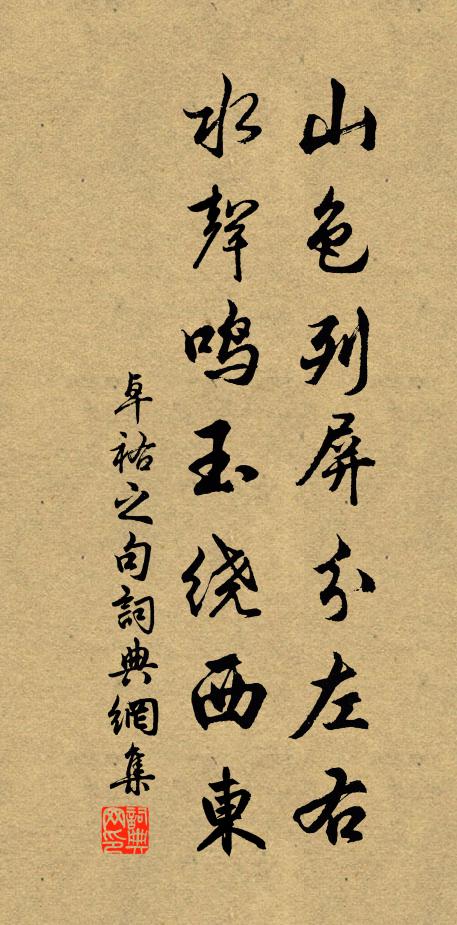 山色列屏分左右
水聲鳴玉绕西東
卓裕之句詞典網集
詞典网印